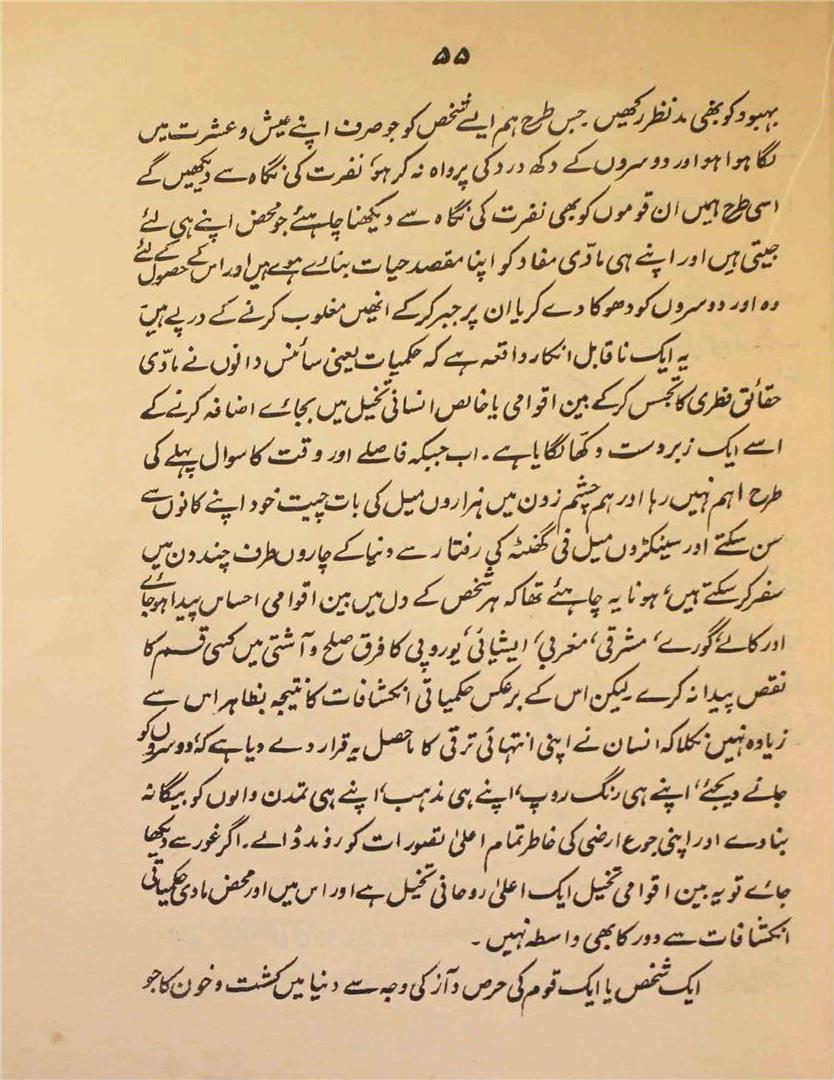 ۵۵
بہبود کو بھی مدنظر رکھیں جس طرح ہم ایسے شخص کو جو صرف اپنے عیش و عشرت میں
لگا ہوا ہو اور دوسروں کے دکھ درد کی پرواہ نہ کر ہو، نفرت کی نگاہ سے دیکھیں گے
اسی طرح ہمیں ان قوموں کو بھی نفرت کی نگاہ سے دیکھنا چاہئے جو محض اپنے ہی لئے
جیتی ہیں اور اپنے ہی مادّی مفاد کو اپنا مقصد حیات بنائے ہوے ہیں اور اس کے حصول کے لئے
وہ اور دوسروں کو دھوکا دے کر یا ان پر جبر کرکے انھیں مغلوب کرنے کے درپے ہیں
یہ ایک ناقابل انکار واقعہ ہے کہ حکمیات یعنی سائنس دانوں نے مادّی
حقائق فطری کا تجسس کرکے بین اقوامی یا خالص انسانی تخیل میں بجائے اضافہ کرنے کے
اسے ایک زبردست دھکا لگایا ہے۔ اب جبکہ فاصلے اور وقت کا سوال پہلے کی
طرح اہم نہیں رہا اور ہم چشم زدن میں ہزاروں میل کی بات چیت خود اپنے کانوں سے
سن سکتے اور سینکڑوں میل فی گھنٹہ کی رفتار سے دنیا کے چاروں طرف چند دن میں
سفر کرسکتے ہیں، ہونا یہ چاہئے تھا کہ ہر شخص کے دل میں بین اقوامی احساس پیدا ہوجائے
اور کالے، گورے، مشرقی، مغربی، ایشیائی، یوروپی کا فرق صلح و آشتی میں کسی قسم کا
نقص پیدا نہ کرے لیکن اس کے برعکس حکمیاتی انکشافات کا نتیجہ بظاہر اس سے
زیادہ نہیں نکلا کہ انسان نے اپنی انتہائی ترقی کا ماحصل یہ قرار دے دیا ہے کہ، دوسروں کو
جانے دیجئے، اپنے ہی رنگ روپ، اپنے ہی مذہب، اپنے ہی تمدن والوں کو بیگانہ
بنادے اور اپنی جوع ارضی کی خاطر تمام اعلیٰ تصورات کو روند ڈالے۔ اگر غور سے دیکھا
جاے تو یہ بین اقوامی تخیل ایک اعلیٰ روحانی تخیل ہے اور اس میں اور محض مادی حکمیاتی
انکشافات سے دور کا بھی واسطہ نہیں۔
ایک شخص یا ایک قوم کی حرص و آز کی وجہ سے دنیا میں کشت و خون کا جو